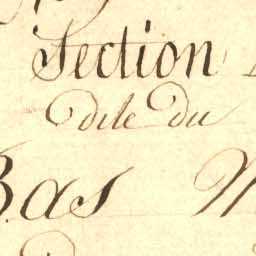 Section
dite du
Bas